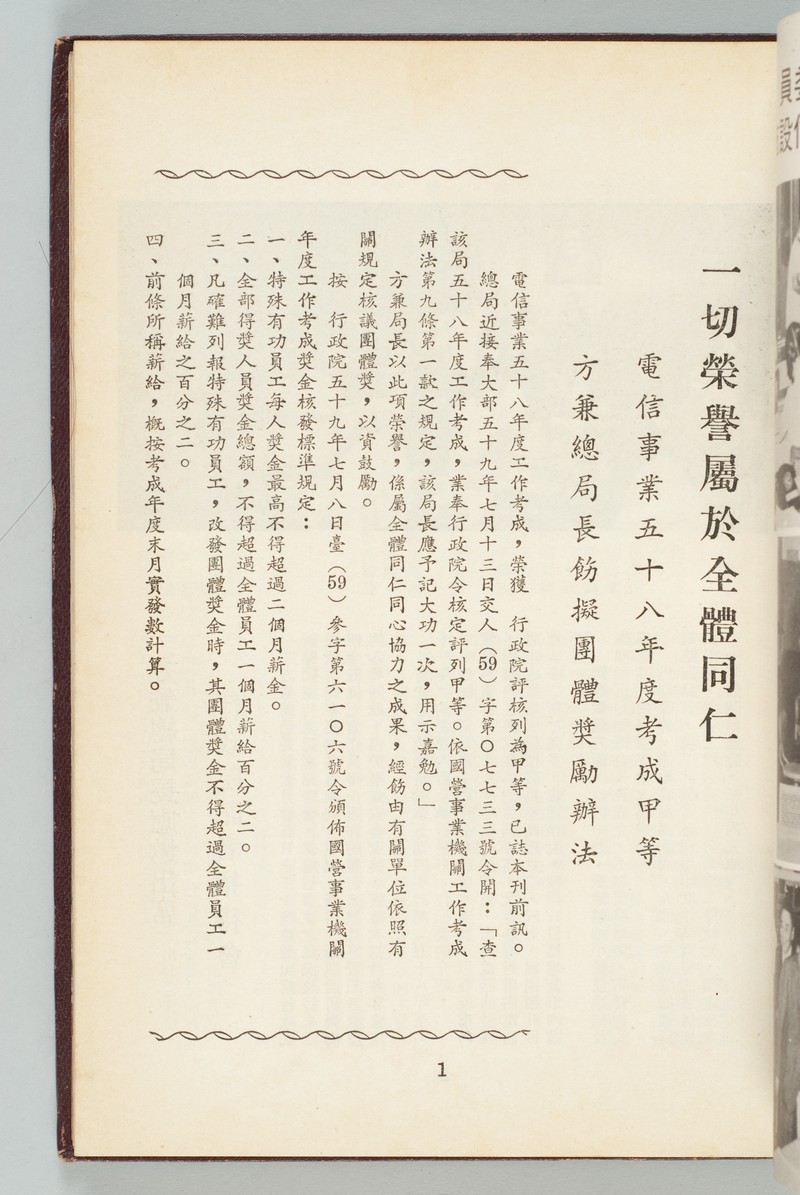 一切榮譽屬於全體同仁
電信事業五十八年度考成甲等
方兼總局長飭擬團體獎勵辦法
電信事業五十八年度工作考成，榮獲　行政院評核列為甲等，已誌本刊前訊。
總局近接奉大部五十九年七月十三日交人（59）字第〇七七三三號令開：「查
該局五十八年度工作考成，業奉行政院令核定評列甲等。依國營事業機關工作考成
辦法第九條第一款之規定，該局長應予記大功一次，用示嘉勉。」
方兼局長以此項榮譽，係屬全體同仁同心協力之成果，經飭由有關單位依照有
關規定核議團體獎，以資鼓勵。
按　行政院五十九年七月八日臺（59）參字第六一〇六號令頒佈國營事業機關
年度工作考成獎金核發標準規定：
一、特殊有功員工每人獎金最高不得超過二個月薪金。
二、全部得獎人員獎金總額，不得超過全體員工一個月薪給百分之二。
三、凡確難列報特殊有功員工，改發團體獎金時，其團體獎金不得超過全體員工一
個月薪給之百分之二。
四、前條所稱薪給，概按考成年度末月實發數計算。
1